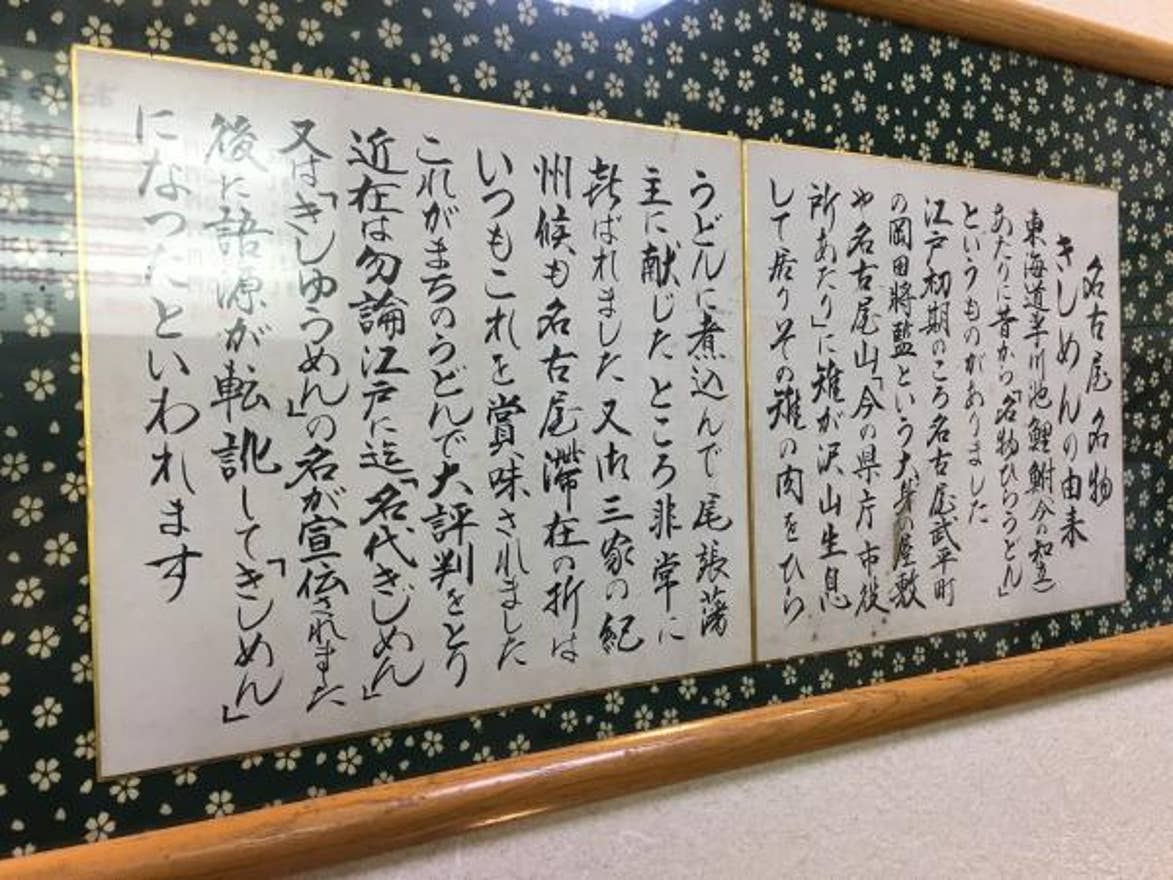 名古屋名物
きしめんの由来
東海道芋川池鯉鮒今の知立
あたりに昔から「名物ひらうどん」
というものがありました
江戸初期のころ名古屋武平町
の岡田将監という大身の屋敷
や名古屋山「今の県庁市役
所あたり」に雉が沢山生息
して居りその雉の肉をひら
うどんに煮込んで尾張藩
主に献じたところ非常に
喜ばれました又御三家の紀
州候も名古屋滞在の折は
いつもこれを賞味されました
これがまちのうどんで大評判をとり
近在は勿論江戸に迄「名代きじめん」
又は「きしゆうめん」の名が宣伝されました
後に語源が転訛して「きしめん」
になつたといわれます